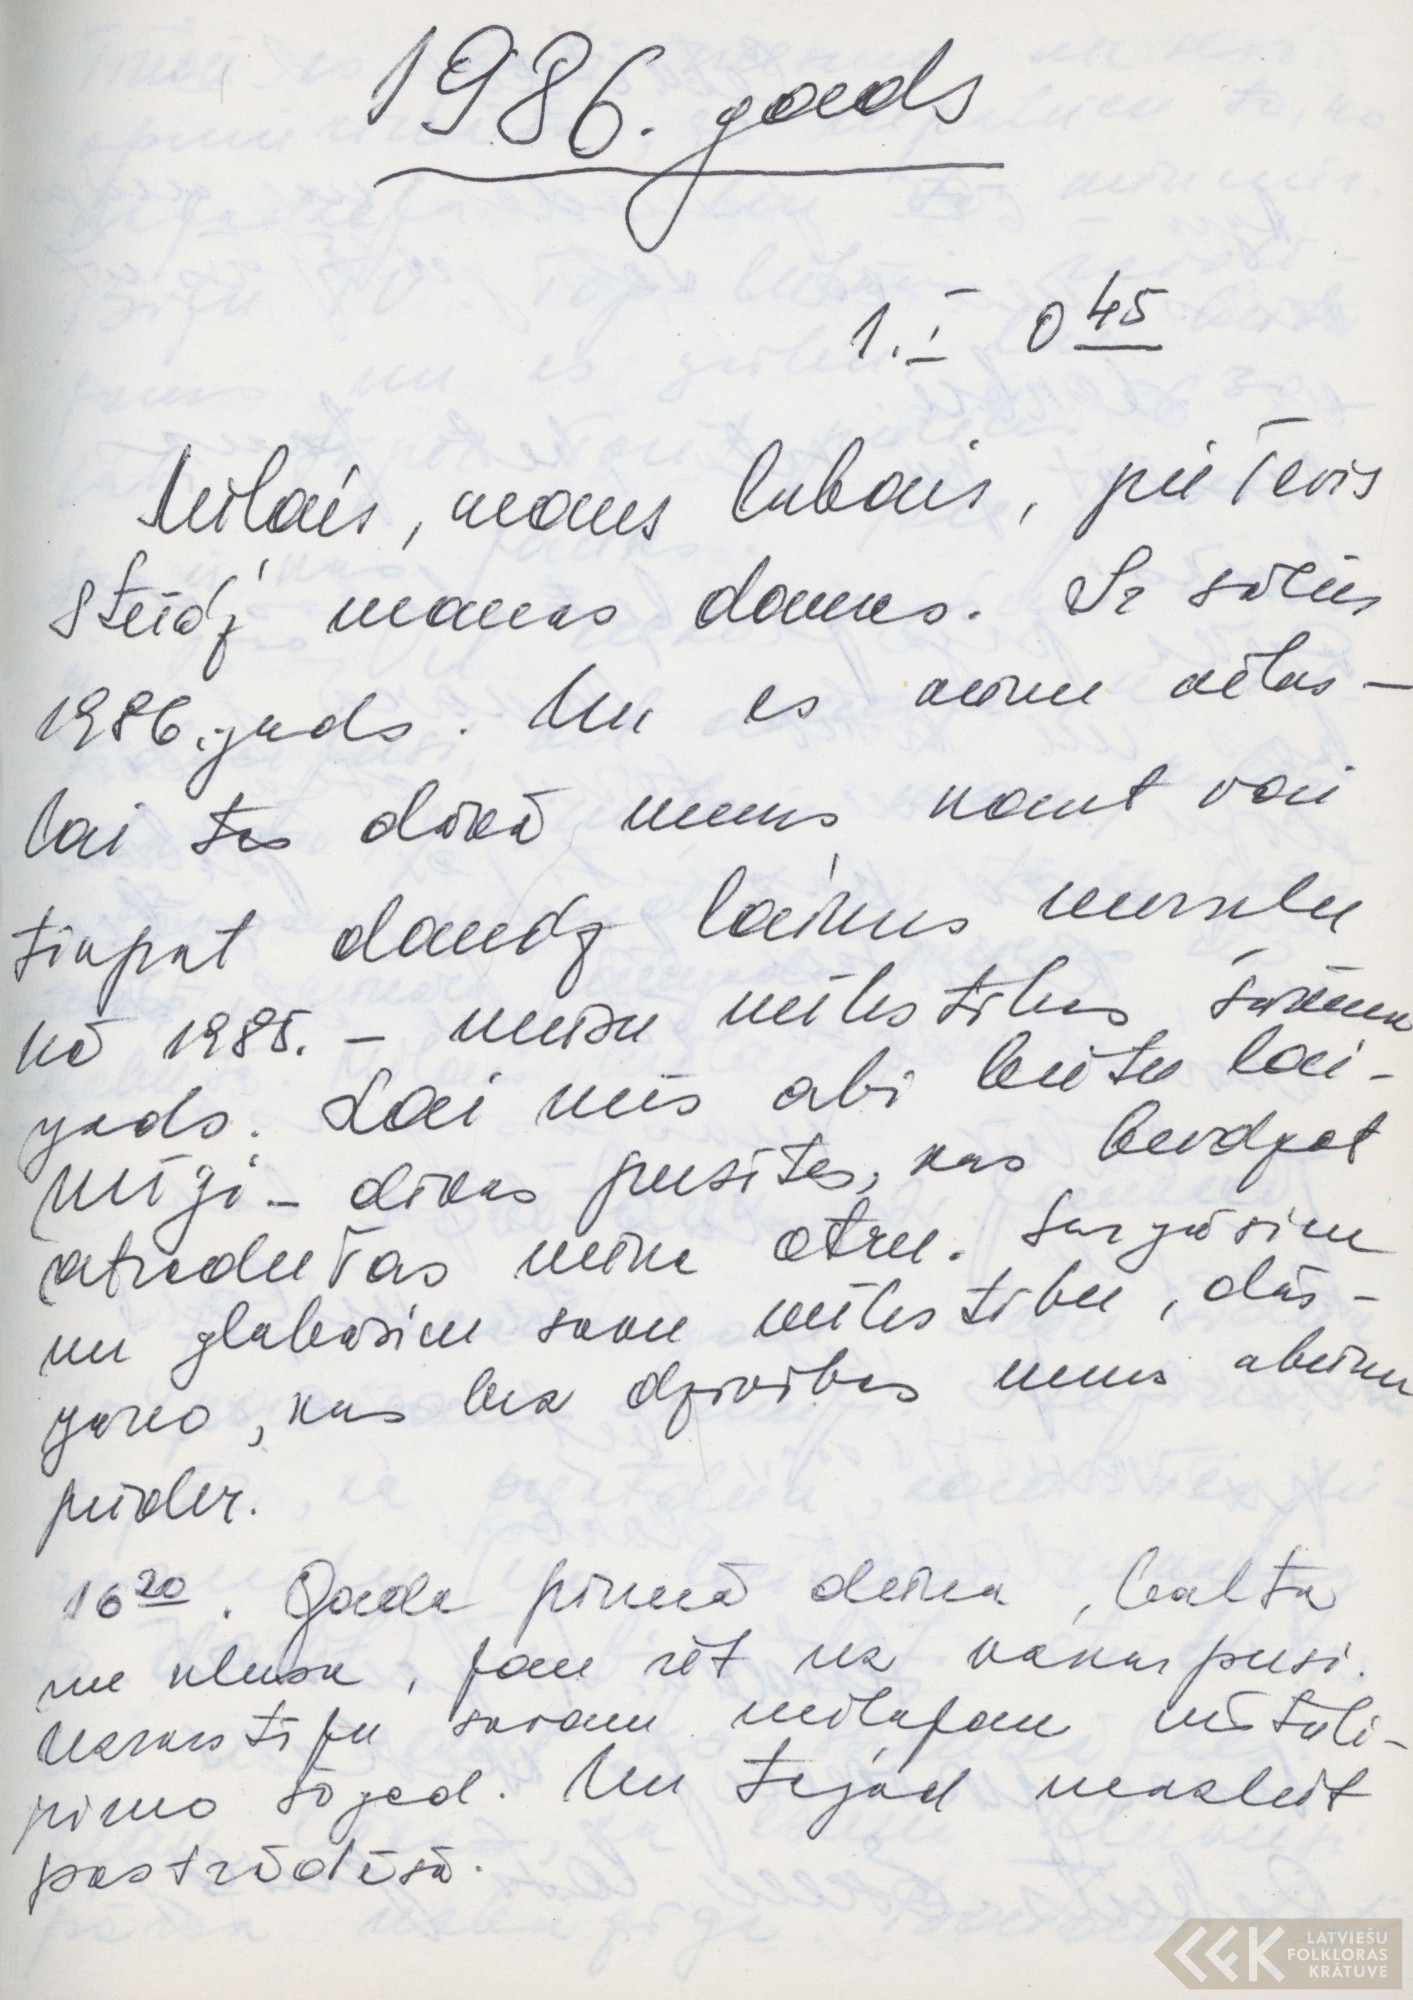 1986. gads
1. I 0 45
Mīlais, mans labais, pie Tevis
steidz manas domas. Ir sācies
1986. gads. Un es vienu vēlos –
lai tas dāvā mums kaut vai
tikpat daudz laimes mirkļu
kā 1985. – mūsu mīlestības
gads. Lai mēs abi būtu lai-
mīgi – divas pusītes, kas beidzot
atradušas viena otru. Sargāsim
un glabāsim savu mīlestību, dār-
gāko, kas bez dzīvības mums abiem
pieder.
16 20. Gada pirmā diena, balta
un klusa, jau iet uz vakarpusi.
Uzrakstīju savam mīļajam vēstuli –
pirmo šogad. Un tagad
pastrādāšu.
LATVIEŠU
FOLKLORAS
KRĀTUVE